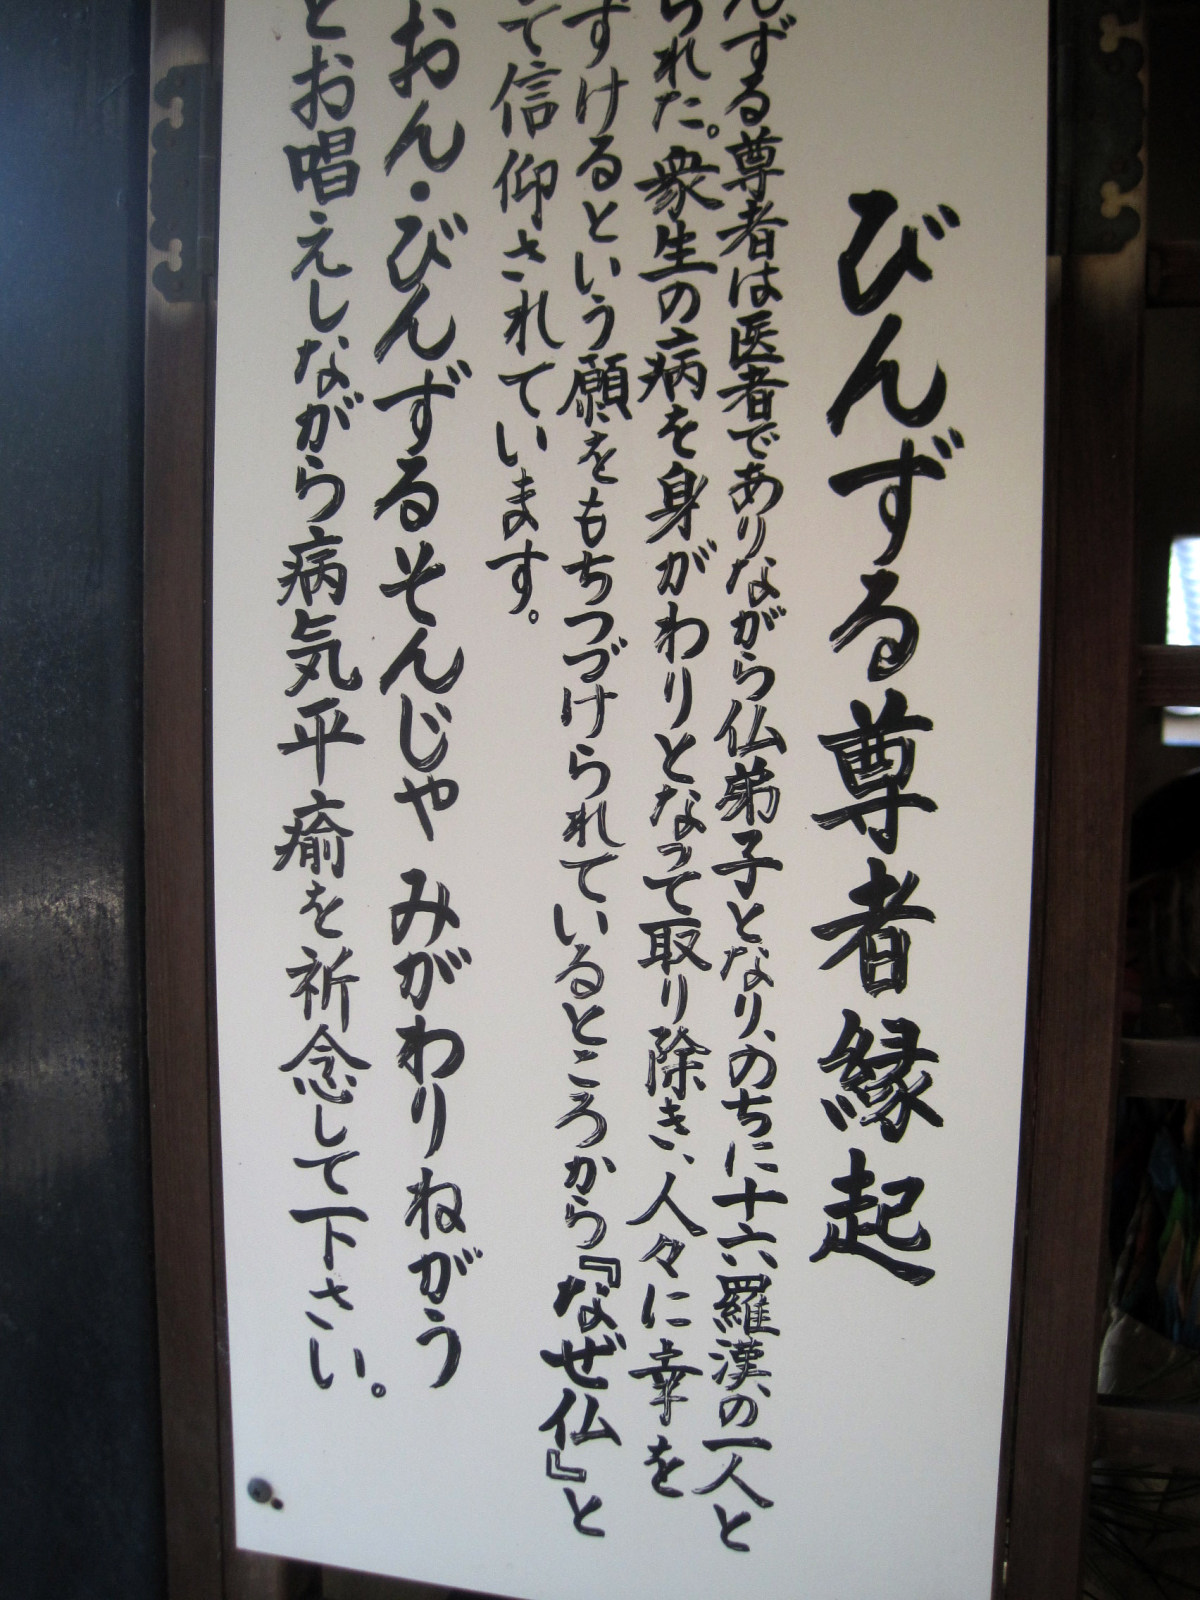 びんずる尊者縁起
んずる尊者は医者でありながら仏弟子となり、のちに十六羅漢の一人と
られた。衆生の病を身がわりとなって取り除き、人々に幸を
ずけるという願をもちつづけられているところから『なぜ仏』と
て信仰されています。
おん・びんずるそんじゃ みがわりねがう
とお唱えしながら病気平癒を祈念して下さい。